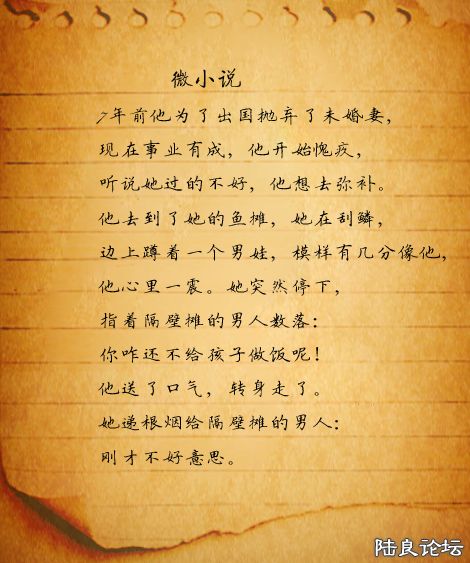 微小说
7年前他为了出国抛弃了未婚妻，
现在事业有成，他开始愧疚，
听说她过的不好，他想去弥补。
他去到了她的鱼摊，她在刮鳞，
边上蹲着一个男娃，模样有几分像他，
他心里一震。她突然停下，
指着隔壁摊的男人数落：
你咋还不给孩子做饭呢！
他送了口气，转身走了。
她递根烟给隔壁摊的男人：
刚才不好意思。
陆良论坛